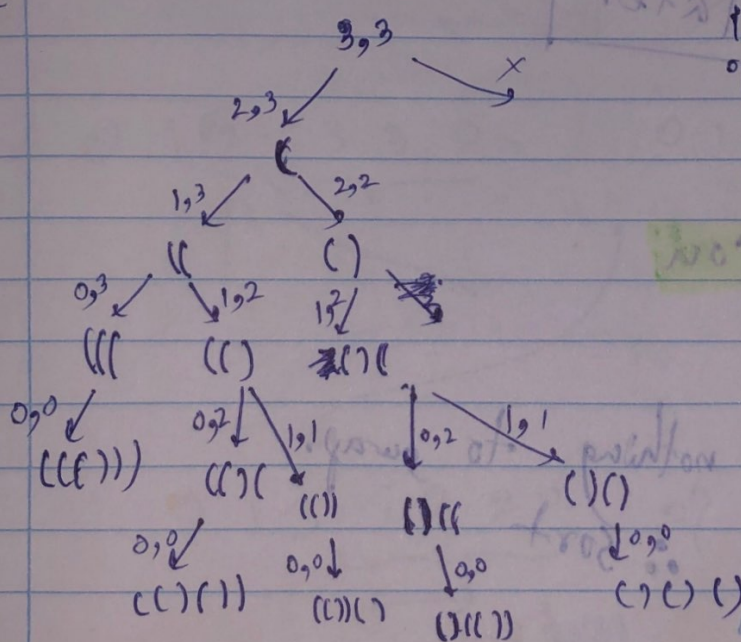 3,3
x
2,3
(
1,3 2,2
(( ()
0,3 1,2 1,2
((( (() ()(
0,0 0,2 1,1 0,2 1,1
((())) (()( (()) ()(( ()()
0,0 0,0 0,0 0,0
(()()) (())() ()(()) ()()()